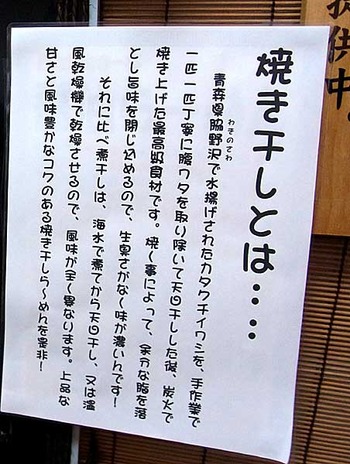 提供中。
焼き干しとは・・・・
わきのさわ
青森県脇野沢で水揚げされたカタクチイワシを、手作業で
一匹一匹丁寧に腰ワタを取り除いて天日干しした後、炭火で
焼き上げた最高級食材です。焼く事によって、余分な脂を落
とし旨味を閉じ込めるので、生臭さがなく味が濃いんです!
それに比べ煮干しは、海水で煮てから天日干し、又は温
風乾燥機で乾燥させるので、風味が全く異なります。上品な
甘さと風味豊かなコクのある焼き干しら〜めんを是非!